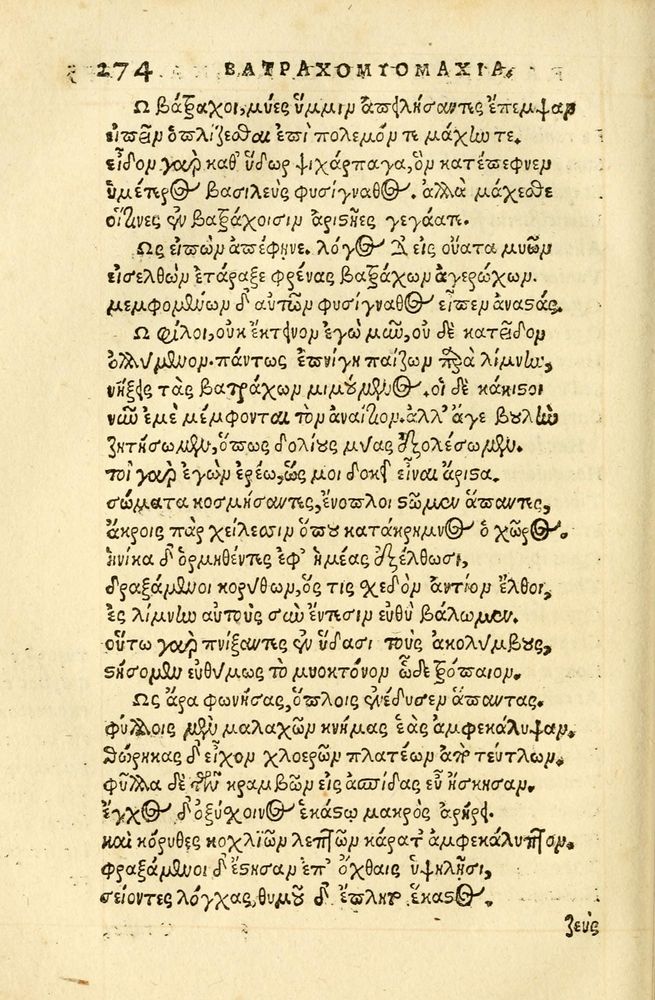 274 ΒΑΤΡΑΧΟΜΥΟΜΑΧΙΑ.
Ω βάτραχοι, μύες ὕμμιν ἀπειλήσαντες ἔπεμψαν
εἰπεῖν ὁπλίζεσθαι ἐπὶ πόλεμόν τε μάχην τε.
εἶδον γὰρ καθ᾽ ὕδωρ ψιχάρπαγα, ὃν κατέπεφνεν
ὑμέτερος βασιλεὺς φυσίγναθος. ἀλλὰ μάχεσθε
οἵτινες ἐν βατράχοισιν ἀριστῆες γεγάατε.
Ως εἰπὼν ἀπέφηνε. λόγος δ᾽ εἰς οὔατα μυῶν
εἰσελθὼν ἐτάραξε φρένας βατράχων ἀγερώχων.
μεμφομένων δ᾽ αὐτῶν φυσίγναθος εἶπεν ἀναστάς.
Ω φίλοι, οὐκ ἔκτεινον ἐγὼ μῦν, οὐ δὲ κατεῖδον
ὀλλύμενον. πάντως ἐπνίγη παίζων παρὰ λίμνην,
νήξεις τὰς βατράχων μιμούμενος. οἱ δὲ κάκιστοι
νῦν ἐμὲ μέμφονται τὸν ἀναίτιον. ἀλλ᾽ ἄγε βουλὴν
ζητήσωμεν, ὅπως δολίους μύας ἐξολέσωμεν.
τοὶ γὰρ ἐγὼν ἐρέω, ὥς μοι δοκεῖ εἶναι ἄριστα.
σώματα κοσμήσαντες, ἔνοπλοι στῶμεν ἅπαντες,
ἄκροις πὰρ χείλεσιν ὅπου κατάκρημνος ὁ χῶρος.
ἡνίκα δ᾽ ὁρμηθέντες ἐφ᾽ ἡμέας ἐξέλθωσι,
δραξάμενοι κορύθων, ὅς τις σχεδὸν ἀντίον ἔλθοι,
ἐς λίμνην αὐτοὺς σὺν ἔντεσιν εὐθὺ βάλωμεν.
οὕτω γὰρ πνίξαντες ἐν ὕδασι τοὺς ἀκολύμβους,
στήσομεν εὐθύμως τὸ μυοκτόνον ὧδε τρόπαιον.
Ως ἄρα φωνήσας, ὅπλοις ἐνέδυσεν ἅπαντας.
φύλλοις μὲν μαλαχῶν κνήμας ἑὰς ἀμφεκάλυψαν.
θώρηκας δ᾽ εἶχον χλοερῶν πλατέων ἀπὸ τεύτλων.
φύλλα δὲ τῶν κραμβῶν εἰς ἀσπίδας εὖ ἤσκησαν.
ἔγχος δ᾽ ὀξύσχοινος ἑκάστῳ μακρὸς ἀρήρει.
καὶ κόρυθες κοχλιῶν λεπτῶν κάρατ᾽ ἀμφεκάλυπτον.
φραξάμενοι δ᾽ ἔστησαν ἐπ᾽ ὄχθαις ὑψηλῆσι,
σείοντες λόγχας, θυμοῦ δ᾽ ἔπλητο ἕκαστος.
Ζεὺς